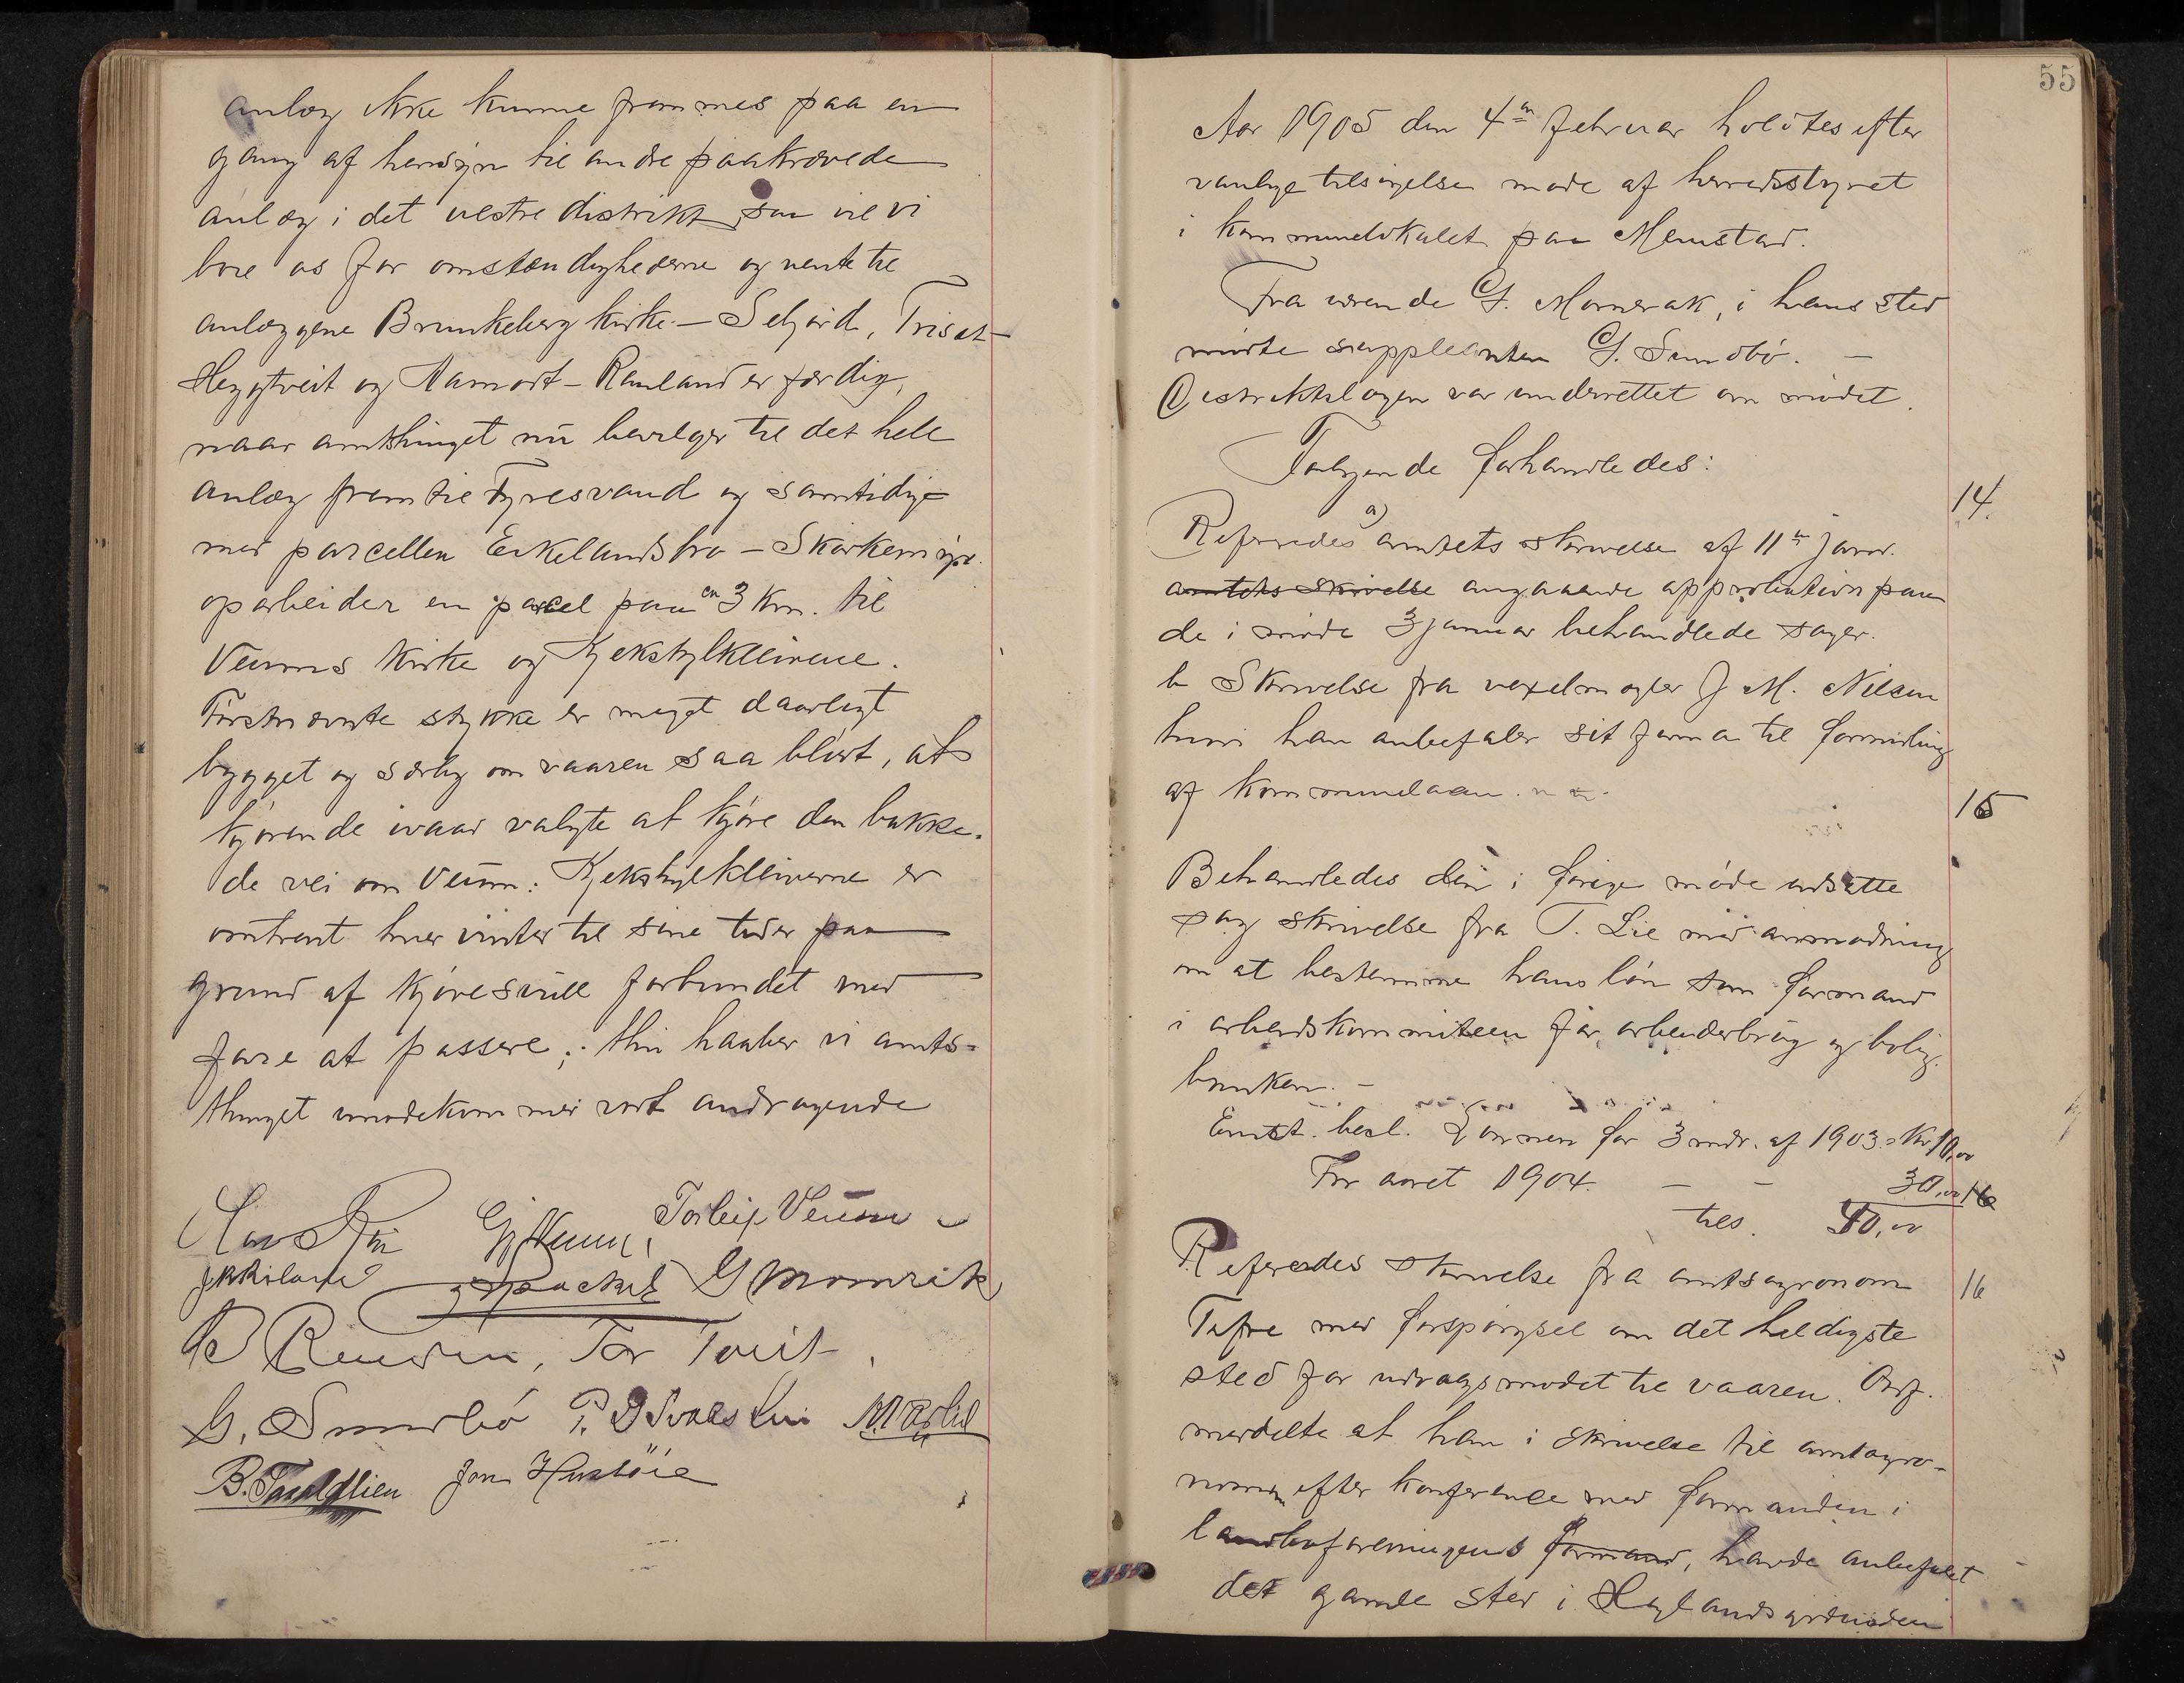 anlæg ikke kunne frammes paa en
gang af hensyn til andre paakrævede
anlæg i det vestre distrikt, saa vil vi
bøie os for omstændighederne og vente til
anlæggene Brunkeberg kirke – Seljord, Triset –
Heggtveit og Aamodt – Rauland er færdig,
naar amtsthinget nu bevilger til det hele
anlæg frem til Fyresvand og samtidig
med parcellen Eikelandsbro – Skorkemyr
oparbeider en parcel paa ca 3 km. til
Veums kirke og Kjekstylkleivene.
Førstnævnte stykke er meget daarligt
bygget og særlig om vaaren saa bløtt, at
kjørende maa valgte at kjøre den bakke-
de vei om Veum: Kjekstylkleiverne er
omtrent hver vinter til sine tider paa
grund af kjøresvull forbundet med
fare at passere; thi haaber vi amts-
thinget imødekommer vort andragende
Torleif Veum
G Momrak
Tor Tveit
G. Sundbö M. Oslid
Jon Hustöie
55
Aar 1905 den 4de februar holdtes efter
vanlige tilsigelse møde af herredsstyret
i kommunelokalet paa Moenstad.
Fraværende G. Momrak, i hans sted
mødte suppleanten G. Sundbö. –
Distriktslægen var underrettet om mødet.
Følgende forhandledes:
14.
Refereredes a) amtets skrivelse af 11te janr.
amtets skrivelse angaaende approbation paa
de i møde 3 januar behandlede sager.
b Skrivelse fra vexelmægler J. M. Nilsen
hvori han anbefaler sit firma til formidling
af kommunelaan.
15
Behandledes den i forige møde udsatte
sag skrivelse fra T. Lie med anmodning
om at bestemme hans løn som formand
i arbeidskommiteen for arbeiderbrug og bolig-
banken. –
Enst. besl. Lønnen for 3 mdr. af 1903 = Kr 10,00
For aaret 1904. – – 30,00
tils. 40,00
16
Refereredes skrivelse fra amtsagronom
Tufte med forspørgsel om det heldigste
sted for udvalgsmødet til vaaren. Ordf.
meddelte at han i skrivelse til amtagro-
nomen efter konference med formanden i
landboforeningens formand, havde anbefalet
det gamle sted i